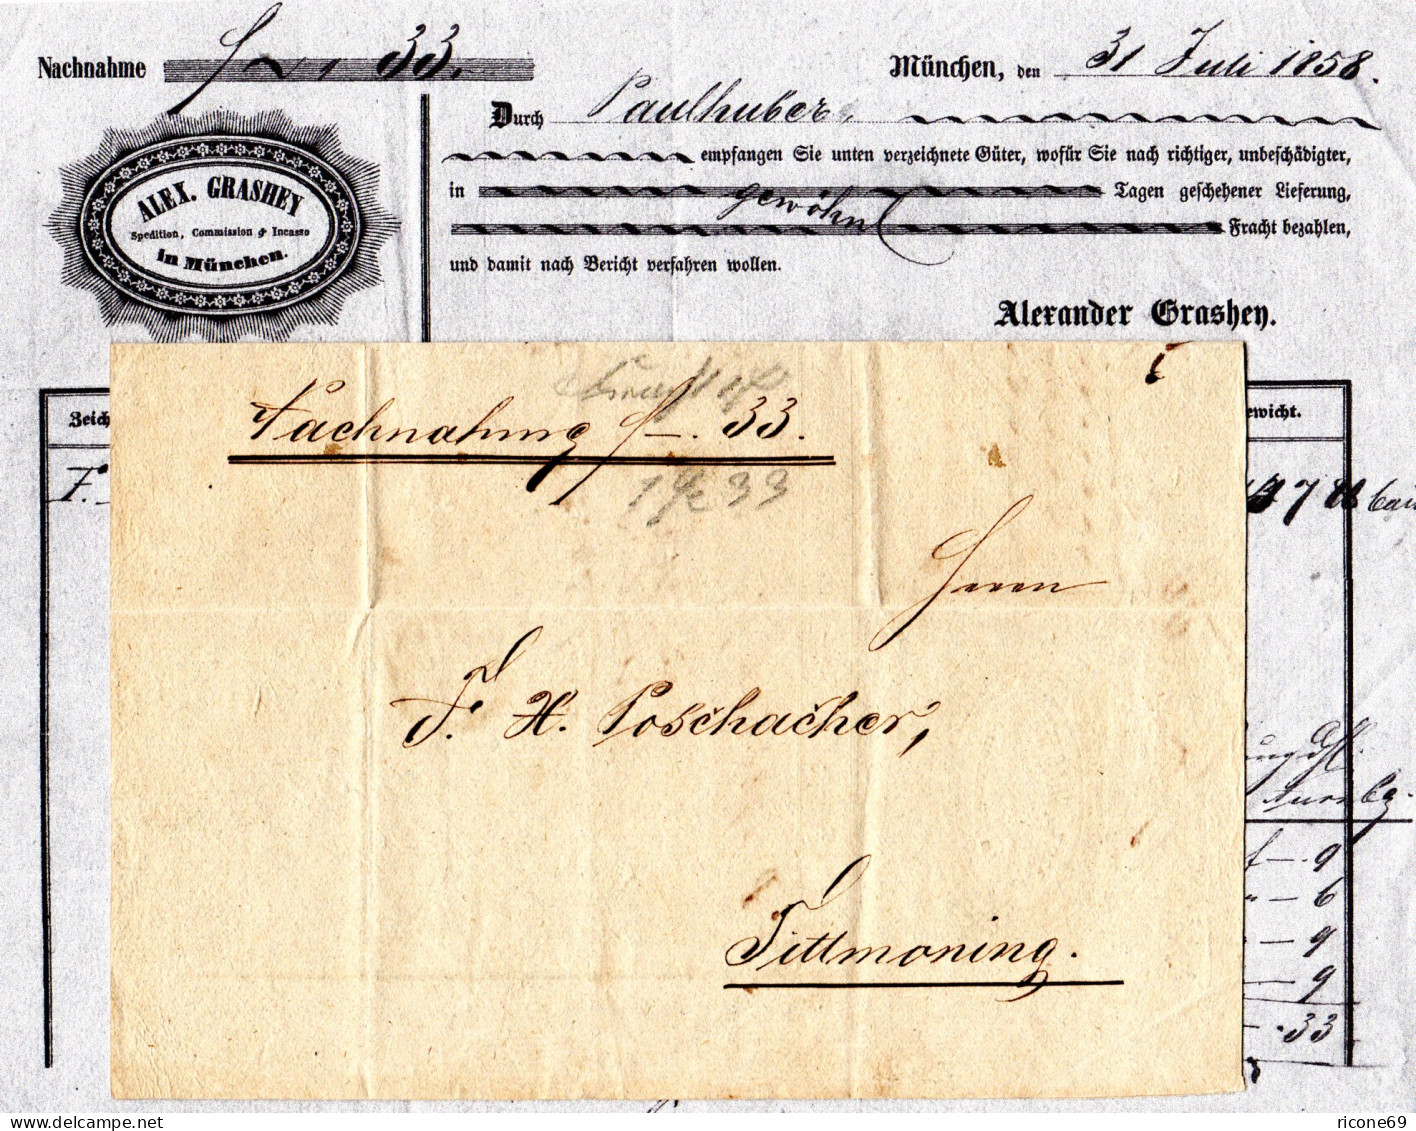 Nachnahme f — 33.
München, den 31 Juli 1858.
Durch Paulhuber,
empfangen Sie unten verzeichnete Güter, wofür Sie nach richtiger, unbeschädigter,
in Tagen geschehener Lieferung,
gewöhnl Fracht bezahlen,
und damit nach Bericht verfahren wollen.
Alexander Grashey.
ALEX. GRASHEY
Spedition, Commission & Incasso
in München.
Zeich
ewicht.
F.
Nachnahme f —. 33.
1 33
Herrn
F. H. Poschacher,
Tittmoning.
f — 9
— 6
— 9
— 9
— . 33
ricone69